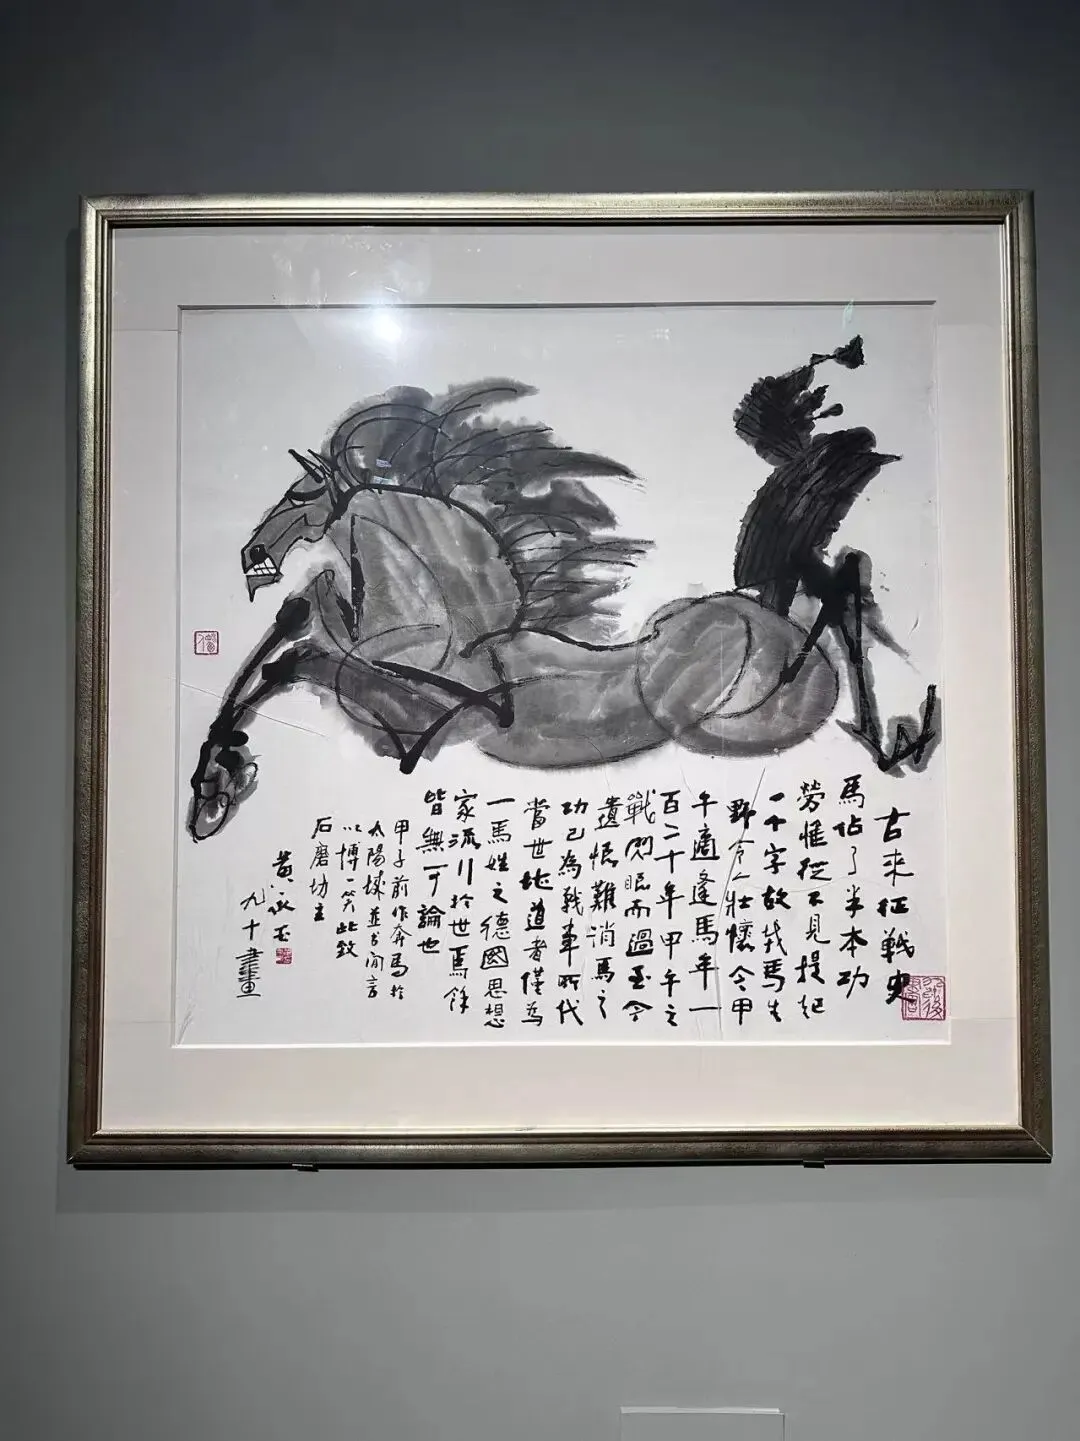 古來征戰史
馬佔了半本功
勞惟從不見提起
一个字故戎馬生
野令人壯懷今甲
午適逢馬年一
百二十年甲午之
戰閃眼而過至今
遺恨難消馬之
功已為戰車所代
當世地道者僅為
一馬姓之德國思想
家流行於世焉餘
皆無可論也
甲子前作奔馬於
太陽城並書閒言
以博一笑此致
石磨坊主
黃永玉
九十畫